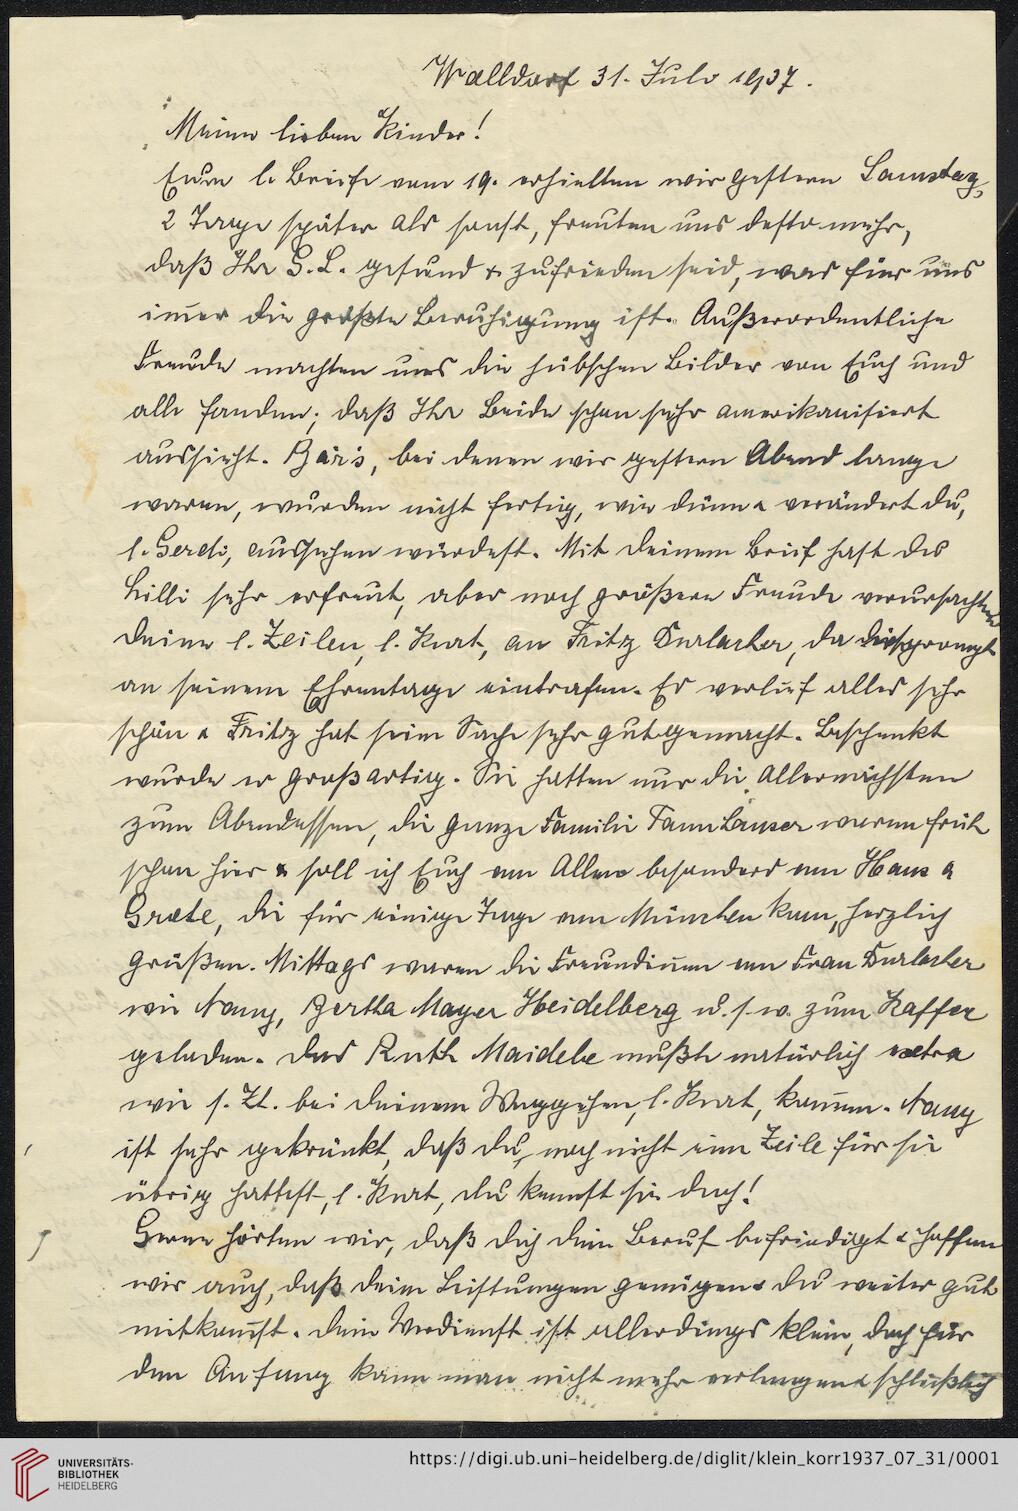 Walldorf 31. July 1937.
Meine lieben Kinder!
Eure l. Briefe vom 19. erhielten wir gestern Samstag,
2 Tage später als sonst, freuten uns desto mehr,
daß Ihr G. L. gesund & zufrieden seid, was für uns
im̅er die größte Beruhigung ist. Außerordentliche
Freude machten uns die hübschen Bilder von Euch und
alle fanden, daß Ihr Beide schon sehr amerikanisiert
ausseht. Bär's, bei denen wir gestern Abend lange
waren, wurden nicht fertig, wie dünn & verändert du,
l. Gerdi, aussehen würdest. Mit deinem Brief hast du
Lilli sehr erfreut, aber noch größere Freude verursachten
deine l. Zeilen, l. Kurt, an Fritz Durlacher, da prompt
an seinem Ehrentage eintrafen. Es verlief alles sehr
schön & Fritz hat seine Sache sehr gut gemacht. Beschenkt
wurde er großartig. Sie hatten nur die Allernächsten
zum Abendessen, die ganze Familie Tannhauser waren früh
schon hier & soll ich Euch von Allen besonders von Hans &
Grete, die für einige Tage von München kam, herzlich
grüßen. Mittags waren die Freundin̅en von Frau Durlacher
wie Nany, Bertha Mayer Heidelberg u. s. w. zum Kaffee
geladen. Das Ruth Maidele mußte natürlich extra
wie s. Zt. bei deinem Weggehen, l. Kurt, kom̅en. Nany
ist sehr gekränkt, daß du noch nicht eine Zeile für sie
übrig hattest, l. Kurt, du kennst sie doch!
Gerne hörten wir, daß dich dein Beruf befriedigt & hoffen
wir auch, daß deine Leistungen genügen & du weiter gut
mitkom̅st. Dein Verdienst ist allerdings klein, doch für
den Anfang kann man nicht mehr verlangen & schließlich
UNIVERSITÄTS-
BIBLIOTHEK
HEIDELBERG
https://digi.ub.uni-heidelberg.de/diglit/klein_korr1937_07_31/0001